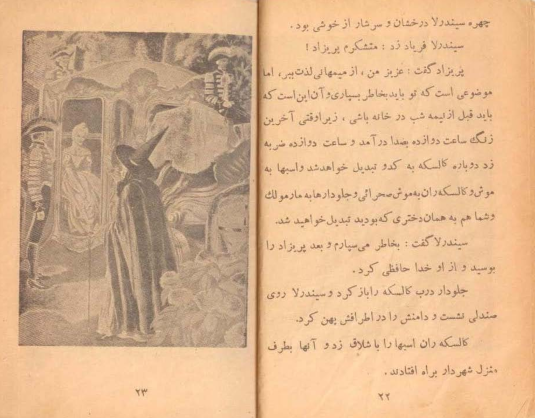 چهره سیندرلا درخشان و سرشار از خوشی بود .
سیندرلا فریاد زد : متشکرم پریزاد !
پریزاد گفت : عزیز من ، از میهمانی لذت ببر ، اما
موضوعی است که تو باید بخاطر بسپاری و آن این است که
باید قبل از نیمه شب در خانه باشی ، زیرا وقتی آخرین
زنگ ساعت دوازده بصدا درآمد و ساعت دوازده ضربه
زد دوباره کالسکه به کدو تبدیل خواهد شد و اسبها به
موش و کالسکه ران به موش صحرائی و جلودارها به مارمولك
و شما هم به همان دختری که بودید تبدیل خواهید شد.
سیندرلا گفت : بخاطر می‌سپارم و بعد پریزاد را
بوسید و از او خدا حافظی کرد .
جلودار درب کالسکه را باز کرد و سیندرلا روی
صندلی نشست و دامنش را در اطرافش پهن کرد.
کالسکه ران اسبها را با شلاق زد و آنها بطرف
منزل شهردار براه افتادند .
۲۲
۲۳